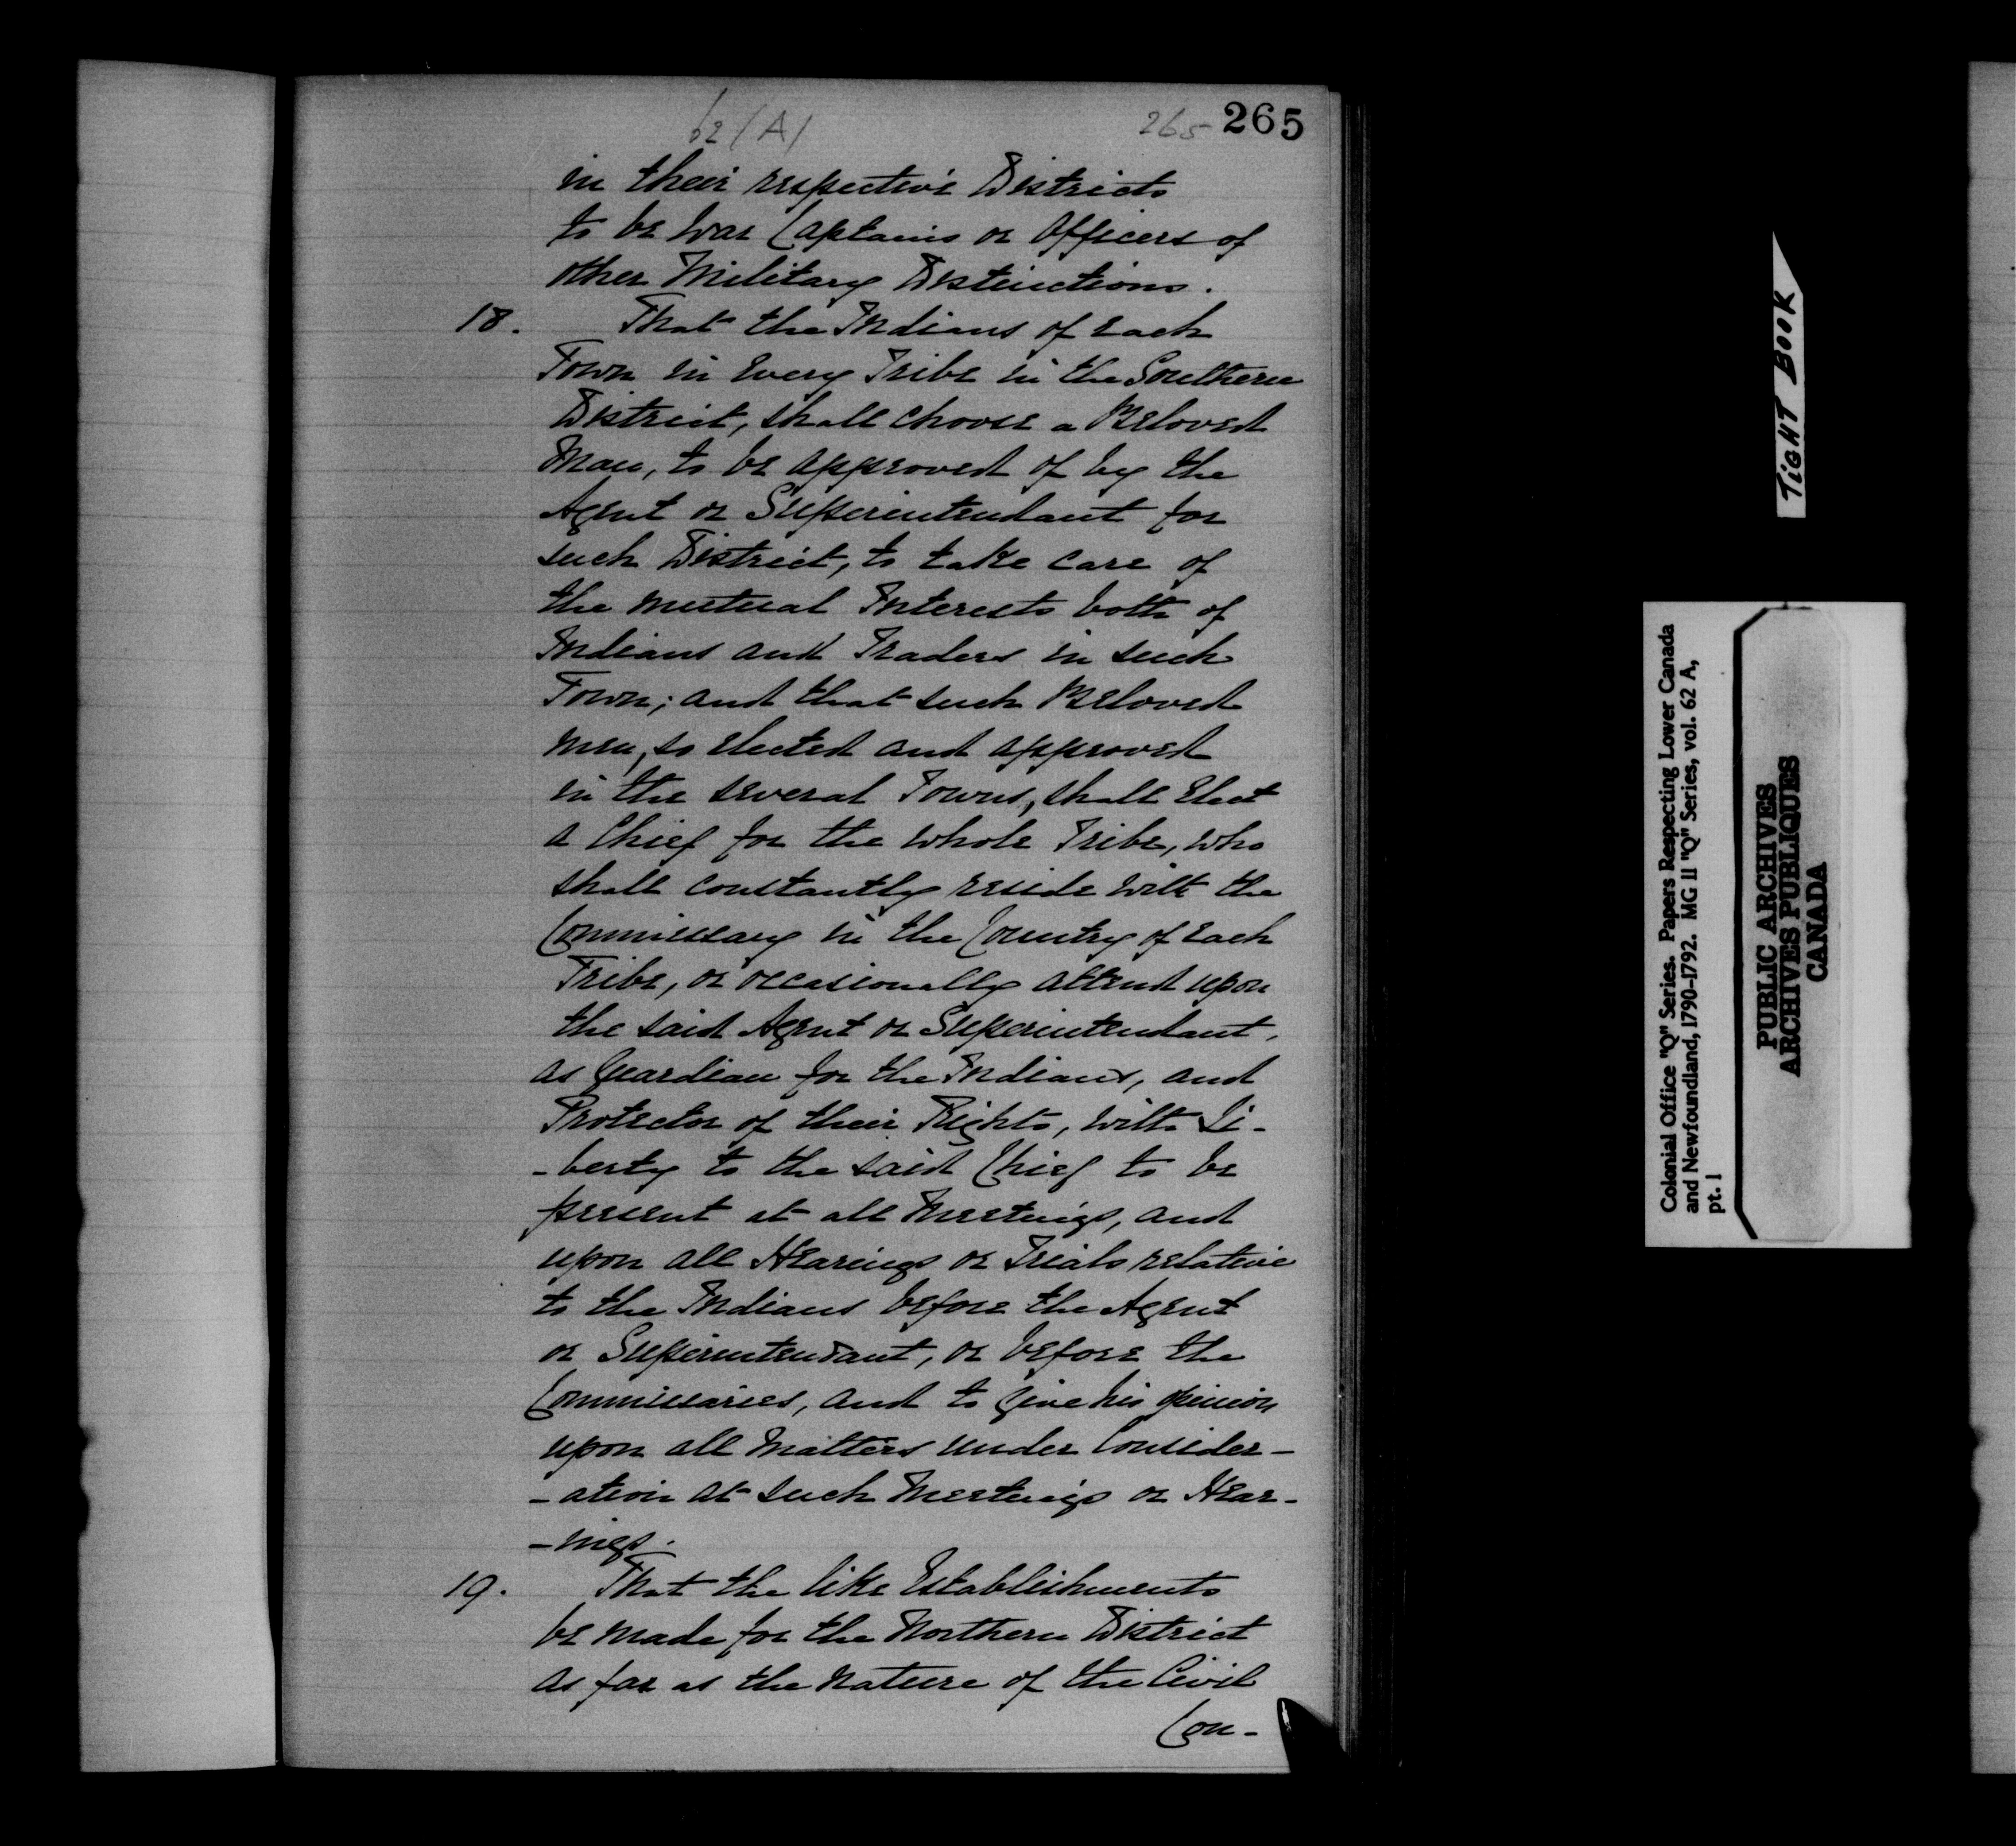 62 (A)
265 265
in their respective Districts
to be War Captains or Officers of
other Military Distinctions.
18. That the Indians of each
Town in every Tribe in the Southern
District, shall choose a Beloved
Man, to be approved of by the
Agent or Superintendant for
such District, to take care of
the mutual Interests both of
Indians and Traders in such
Town; and that such Beloved
men, so elected and approved
in the several Towns, shall elect
a Chief for the whole Tribe, who
shall constantly reside with the
Commissary in the Country of each
Tribe, or occasionally attend upon
the said Agent or Superintendant,
as Guardian for the Indians, and
Protector of their Rights, with Li-
-berty to the said Chief to be
present at all Meetings, and
upon all Hearings or Trials relative
to the Indians before the Agent
or Superintendant, or before the
Commissaries, and to give his opinion
upon all Matters under Consider-
-ation at such Meetings or Hear-
-ings.
19. That the like Establishments
be made for the Northern District
as far as the nature of the Civil
Con-
TIGHT BOOK
Colonial Office "Q" Series. Papers Respecting Lower Canada
and Newfoundland, 1790-1792. MG 11 "Q" Series, vol. 62 A,
pt. 1
PUBLIC ARCHIVES
ARCHIVES PUBLIQUES
CANADA